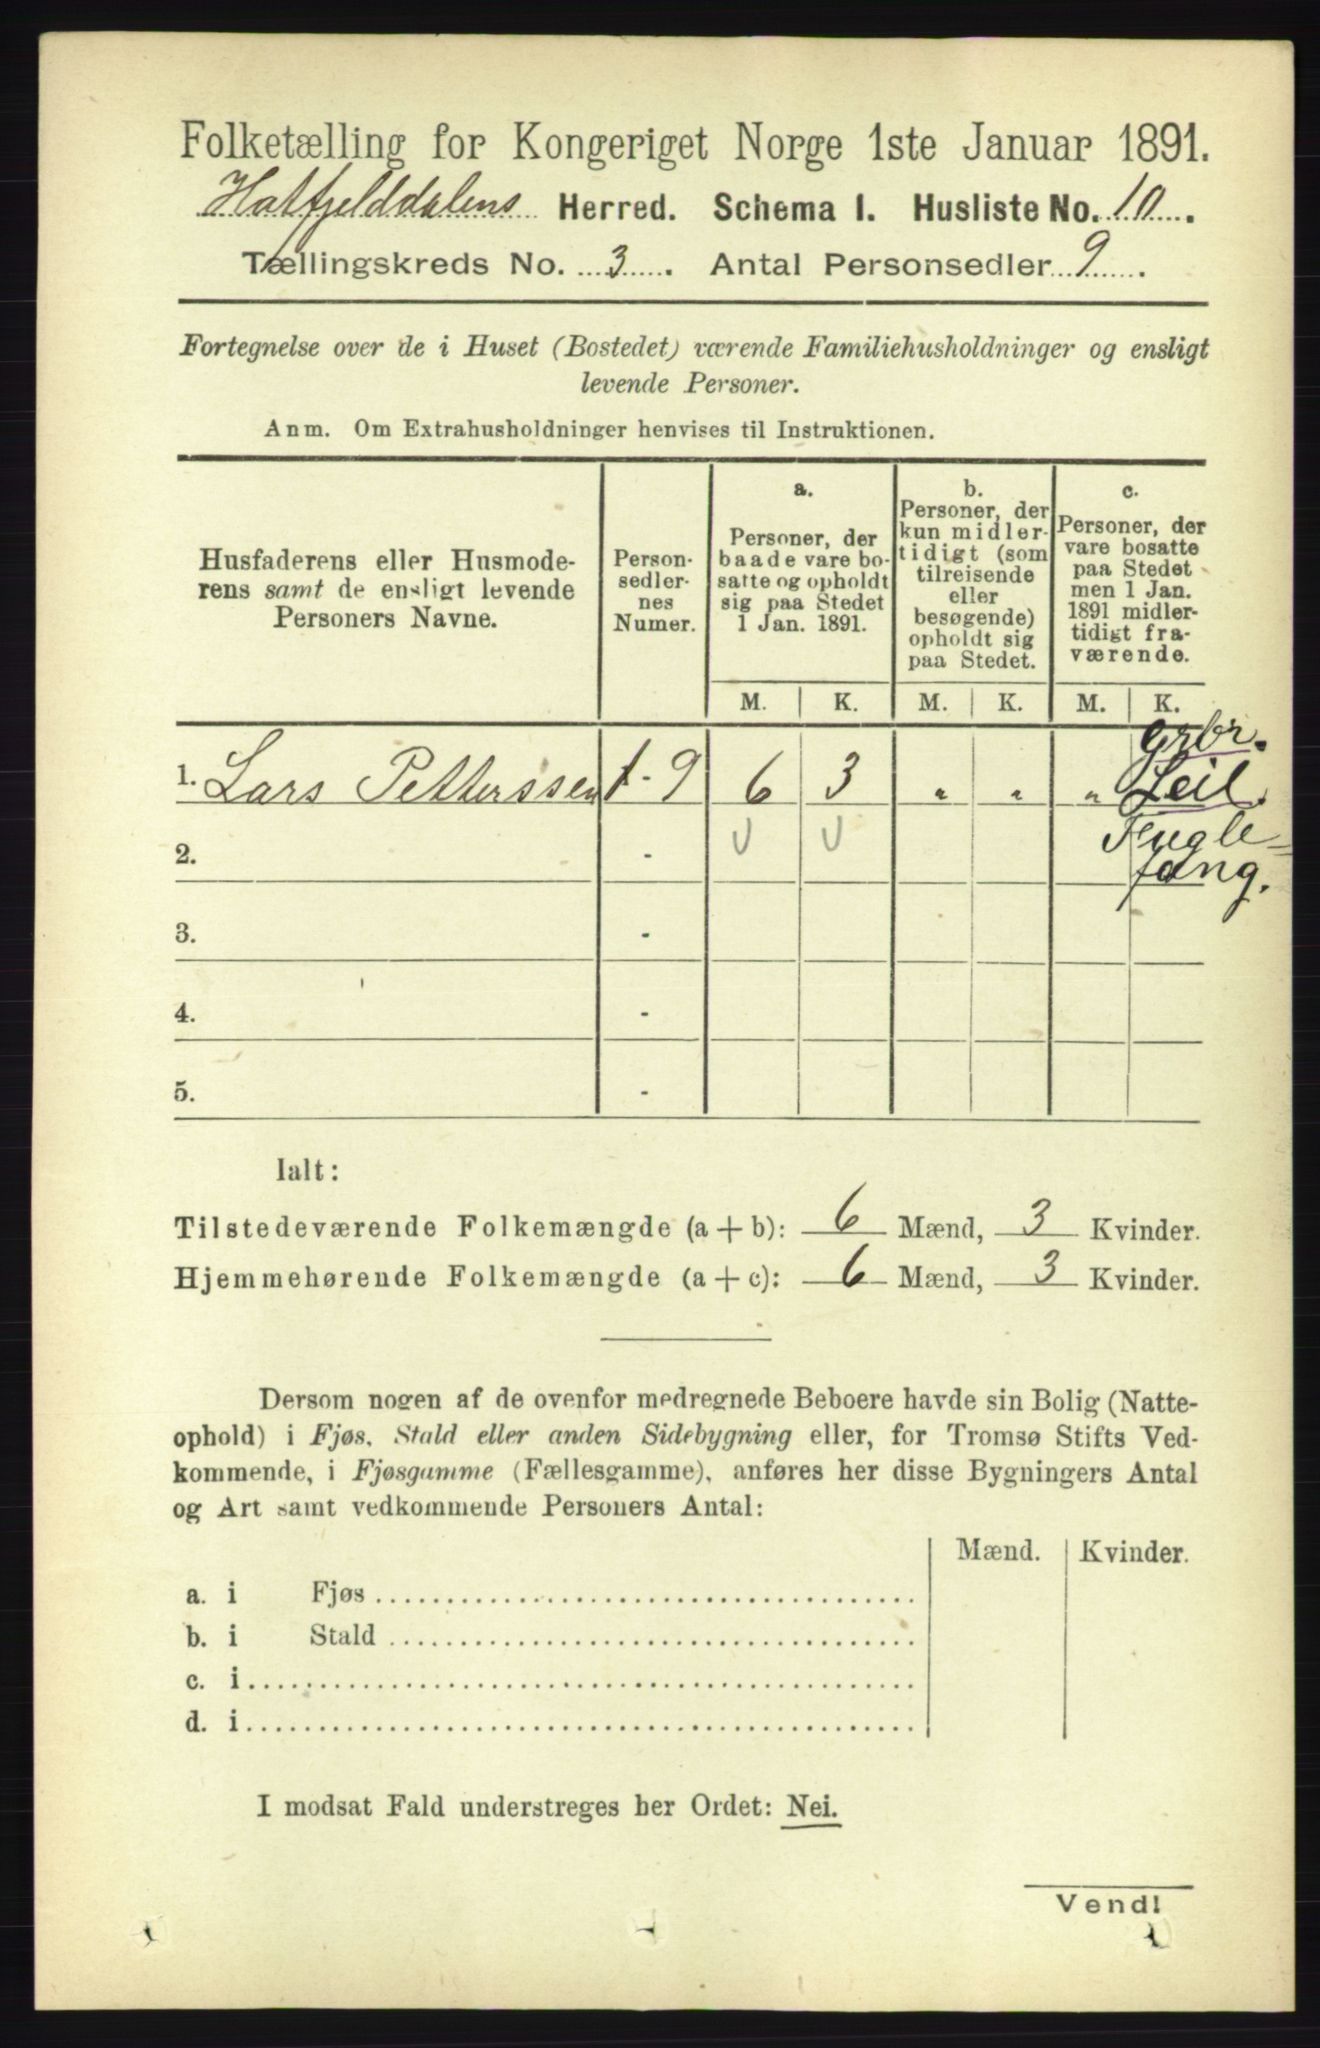 Folketælling for Kongeriget Norge 1ste Januar 1891.
Hatfjelddalens Herred. Schema I. Husliste No. 10.
Tællingskreds No. 3. Antal Personsedler 9
Fortegnelse over de i Huset (Bostedet) værende Familiehusholdninger og ensligt
levende Personer.
Anm. Om Extrahusholdninger henvises til Instruktionen.
Husfaderens eller Husmode-
rens samt de ensligt levende
Personers Navne.
Person-
sedler-
nes
Numer.
a.
Personer, der
baade vare bo-
satte og opholdt
sig paa Stedet
1 Jan. 1891.
b.
Personer, der
kun midler-
tidigt (som
tilreisende
eller
besøgende)
opholdt sig
paa Stedet.
c.
Personer, der
vare bosatte
paa Stedet
men 1 Jan.
1891 midler-
tidigt fra-
værende.
M. K. M. K. M. K.
grbr.
1. Lars Petterssen 1-9 6 3 " " " Leil.
Fugle=
fang.
2. -
3. -
4. -
5. -
Ialt:
Tilstedeværende Folkemængde (a + b): 6 Mænd, 3 Kvinder.
Hjemmehørende Folkemængde (a + c): 6 Mænd, 3 Kvinder.
Dersom nogen af de ovenfor medregnede Beboere havde sin Bolig (Natte-
ophold) i Fjøs, Stald eller anden Sidebygning eller, for Tromsø Stifts Ved-
kommende, i Fjøsgamme (Fællesgamme), anføres her disse Bygningers Antal
og Art samt vedkommende Personers Antal:
Mænd. Kvinder.
a. i Fjøs
b. i Stald
c. i
d. i
I modsat Fald understreges her Ordet: Nei.
Vend!